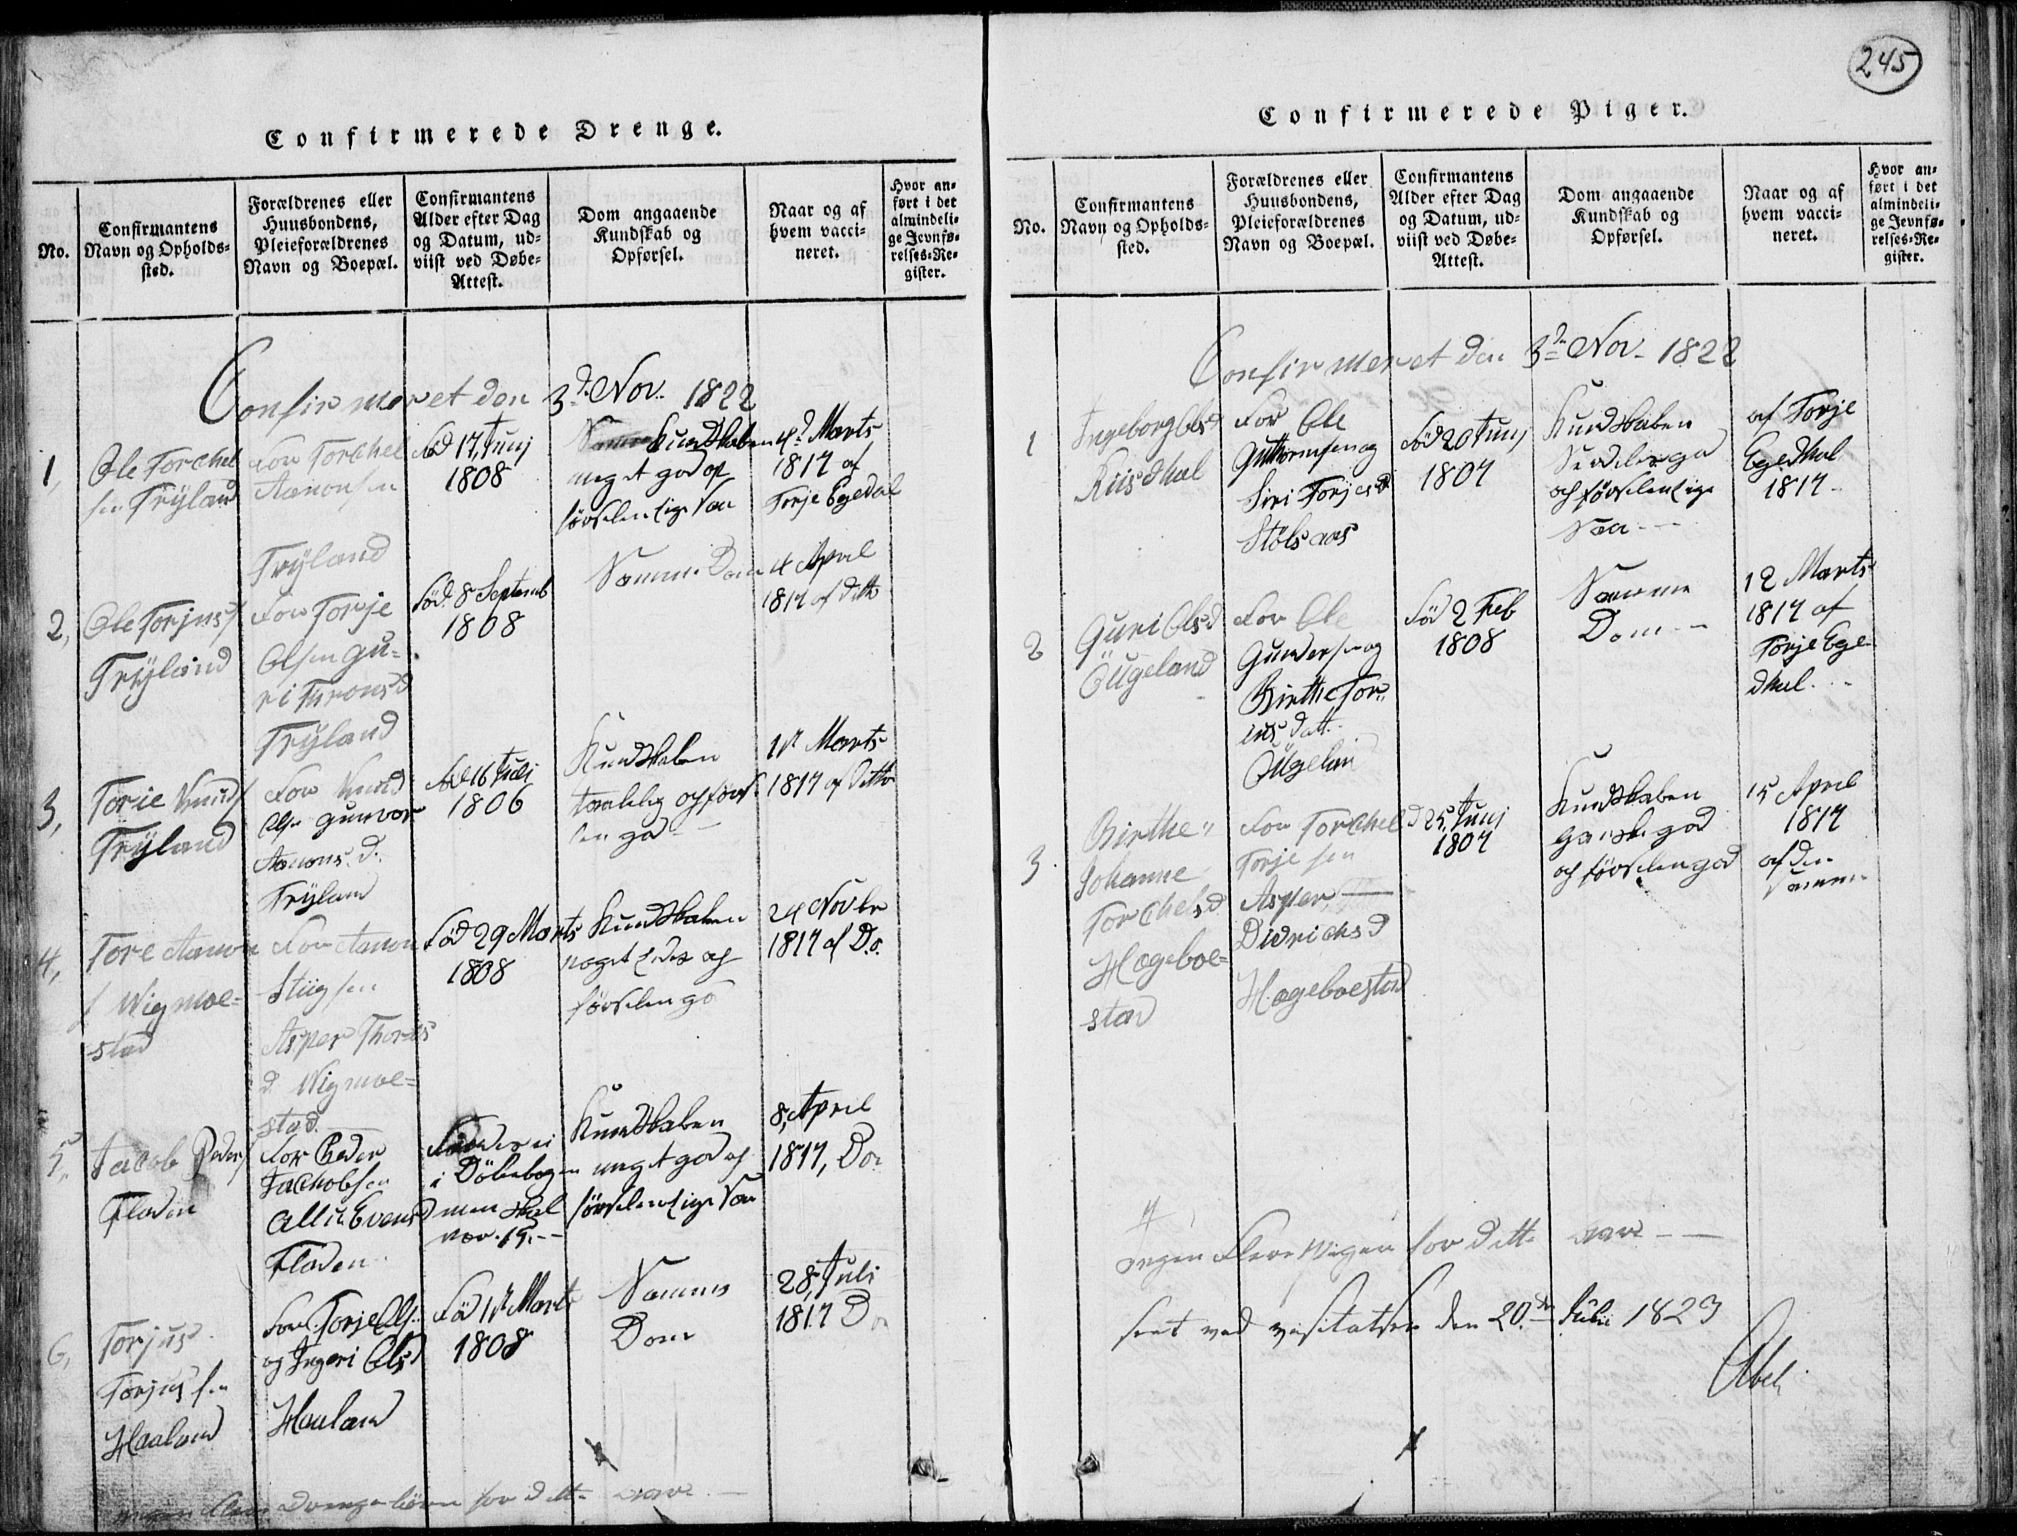 245
Confirmerede Drenge.
No.
Confirmantens
Navn og Opholds-
sted.
Forældrenes eller
Huusbondens,
Pleieforældrenes
Navn og Boepæl.
Confirmantens
Alder efter Dag
og Datum, ud-
viist ved Døbe-
Attest.
Dom angaaende
Kundskab og
Opførsel.
Naar og af
hvem vacci-
neret.
Hvor an-
ført i det
almindeli-
ge Jevnfø-
relses-Re-
gister.
Confirmeret den 3d Nov. 1822
1,
Ole Torchel
sen Trÿland
For Torchel
Aanonsen
Trÿland
Fød 17, Junj
1808
Kundskaben
meget god og
førselen lige saa
4d Marts
1817 af
Torje Egedal
2,
Ole Torjus/
Trÿland
For Torje
Olsen Gu-
ri Tronsd
Trÿland
Fød 8 Septemb
1808
Samme Dom
4 April
1817 af ditto
3,
Torie Knuds/
Trÿland
For Knud
Ols. Gunvor
Aanons. d.
Trÿland
Fød 16 Juli
1806
Kundskaben
taalelig og førs-
len god
Marts
1817 af ditto
4,
Tore Aanon
s Wigmoe-
stad
For Aanon
Stiigsen
Asper Thords
d. Wigmoe-
stad.
Fød 29 Marts
1808
Kundskaben
noget og
førselen god
24 Novbr
1817 af Do.
5,
Jacob Peders/
Floden
For Peder
Jachobsen
Alli Evensd
Floden
i Døbebogen
men skal
vær. 15.
Kundskaben
meget god og
førselen lige saa
8, April
1817, Do
6,
Torjus
Torjussen
Haaland
For Torje Ols.
og Ingeri Olsd
Haaland
Fød Marts
1808
Samme
Dom
28, Juli
1817 Do
Drengebörn for dette aar
Confirmerede Piger.
No.
Confirmantens
Navn og Opholds-
sted.
Forældrenes eller
Huusbondens,
Pleieforældrenes
Navn og Boepæl.
Confirmantens
Alder efter Dag
og Datum, ud-
viist ved Døbe-
Attest.
Dom angaaende
Kundskab og
Opførsel.
Naar og af
hvem vacci-
neret.
Hvor an-
ført i det
almindeli-
ge Jevnfø-
relses-Re-
gister.
Confirmeret den 3d Nov. 1822
1
Ingeborg Olsd
Riisdhal
For Ole
Guttormsen og
Siri Torjesd
Stølsaas
Fød 20 Junj
1807
Kundskaben
god
og førselen lige
saa
af Torje
Egedhal
1817
2
Guri Olsd
Öugeland
For Ole
Gundersen og
Birthe Tor-
ius datt.
Ougelan
Fød 2 Feb
1808
Samme
Dom
12 Marts
1817 af
Torje Ege-
dhal.
3
Birthe
Johanne
Torchelsd
Hægeboe-
stad
For Torchel
Torjesen
Asper
Didrichsd
Hægeboestad
25, Junj
1807
Kundskaben
ganske god
og førselen god
15 April
1817
af den
samme
Ingen Flere Piger for dette aar
seet ved visitatsen den 20de Julii 1823
Abel